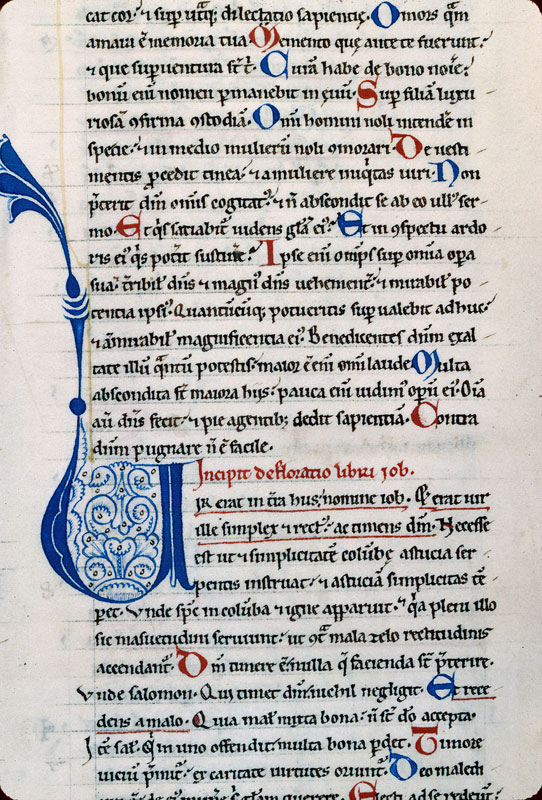 cat cor. ⁊ suꝑ utqꝫ dilectatio sapientie. O mors q̄m
amara ē memoria tua. Memento que ante te fuerunt.
⁊ que suꝑuentura st̄ t̄. Curā habe de bono noīe.
bonū eni nomen ꝑmanebit in euū. Suꝑ filiā luxu
riosā ꝯfirma ꝯstodiā. Omi homini noli intende in
specie. ⁊ in medio mulierū noli ꝯmorari. De uesti
mentis ꝓcedit tinea. ⁊ a muliere iniqͥtas uiri. Non
p̄terit dm̄ omīs cogitat. ⁊ n̄ abscondit se ab eo ull ser
mo. Et qͥs satiabit uidens glām ei. Et in ꝯspectu ardo
ris ei qͥs poterit sustine. Ipse eni omīps suꝑ omnia oꝑa
sua. tribil dn̄s ⁊ magn dn̄s uehement. ⁊ mirabil po
tentia ipsi. Quantūcūqꝫ potueritis suꝑ ualebit adhuc.
⁊ āmirabil magnificentia ei. Benedicentes dnm exal
tate illū qͣntū potestis. maior ē eni omi laude. Multa
abscondita st̄ maiora hijs. pauca eni uidim opū ei. Oīa
aū dn̄s fecit. ⁊ pie agentibꝫ dedit sapientiā. Contra
dnm pugnare n̄ ē facile.
Incipit defloratio libri iob.
UIR erat in tͬra hus nomine iob. Et erat uir
ille simplex ⁊ rect. ac timens dm̄. Necesse
est ut ⁊ simplicitatē colūbe astucia ser
pentis instruat. ⁊ astuciā simplicitas tē
ꝑet. Vnde sp̄c in colūba ⁊ igne apparuit. qͣa pleni illo
sic māsuetudini seruiunt. ut ꝯtͣ mala zelo rectitudinis
accendant. Dm̄ timere ē nulla q̄ facienda st̄ p̄terire.
Vnde salomon. Qui timet dm̄ nichil negligit. Et rece
dens a malo. Quia mal mixta bona. n̄ st̄ do accepta.
Īcē sal. Qͥ in uno offendit. multa bona ꝑdet. Timore
uiciū p̄mit. ex caritate uirtutes oriunt. Deo maledi